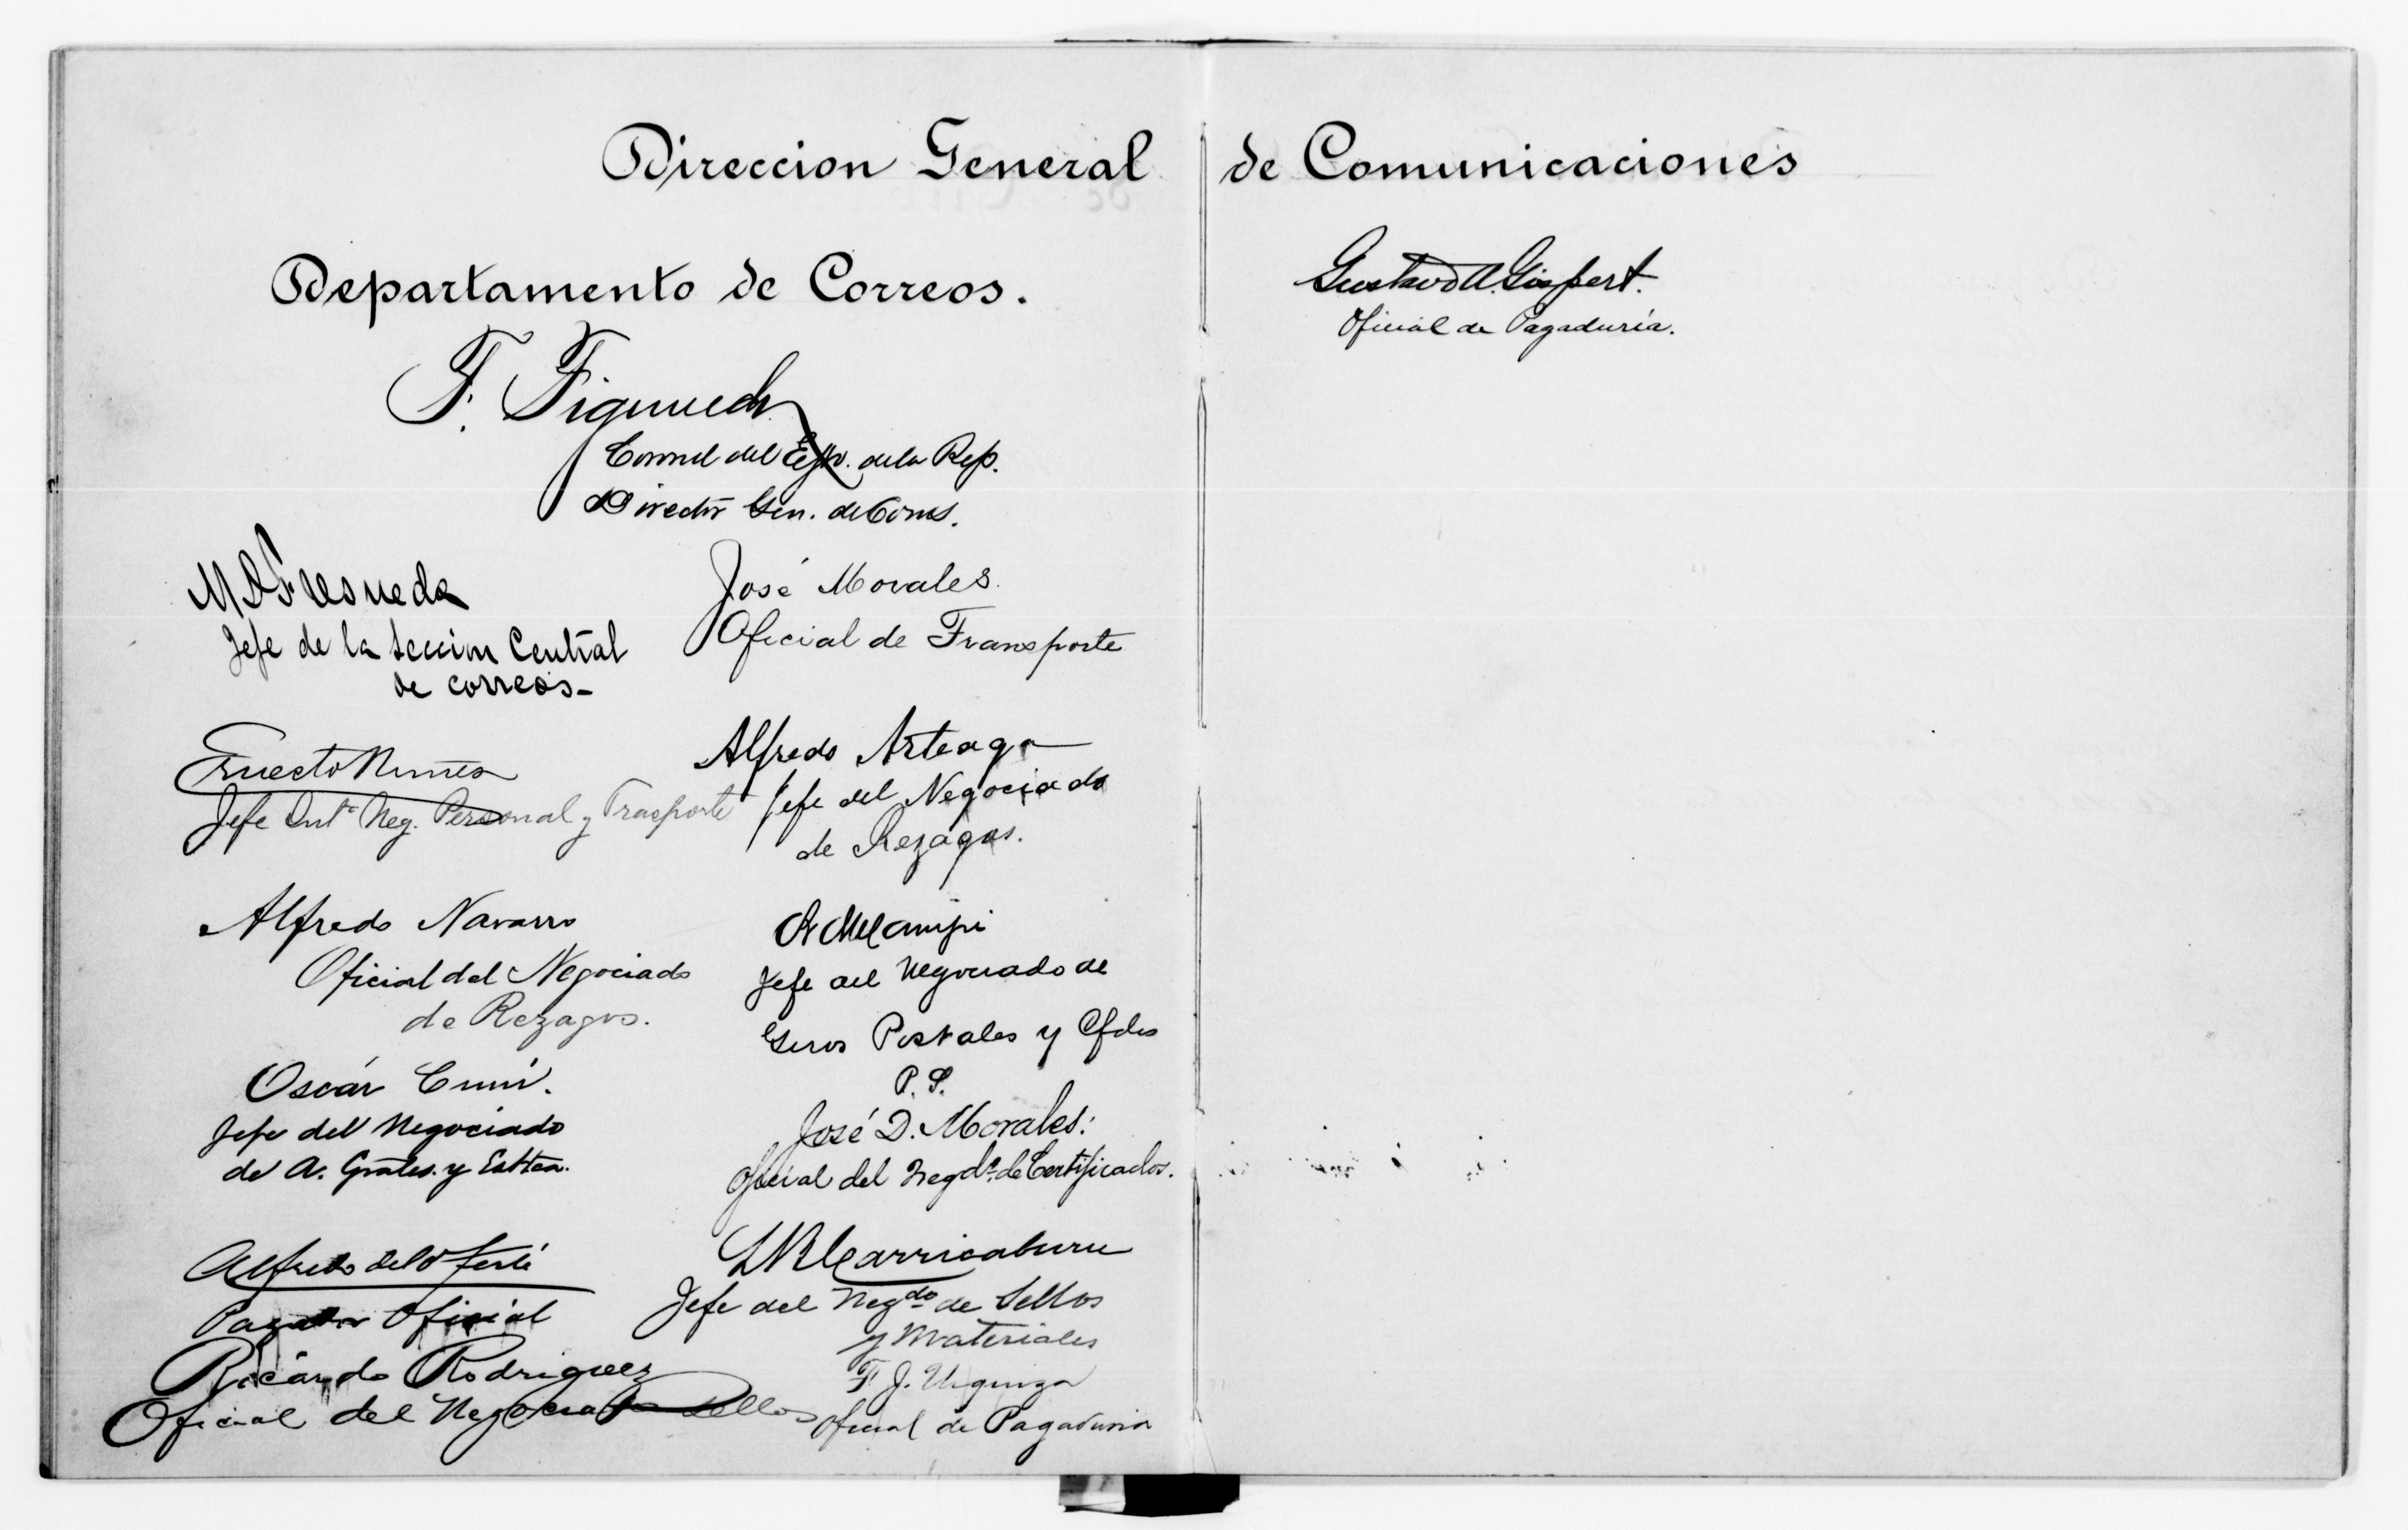 Direccion General de Comunicaciones
Departamento de Correos.
F. Figueredo
Coronel del Ejto. de la Rep.
Director Gen. de Coms.
Jefe de la Seccion Central
de correos-
Ernesto Nunes
Jefe Int° Neg. Personal y Trasporte
Alfredo Navarro
Oficial del Negociado
de Rezagos.
Oscár Cuní.
Jefe del Negociado
de A. Grales. y Esttca.
Alfredo del
Pagador Oficial
Ricardo Rodriguez
Oficial del Negociado Sellos
José Morales.
Oficial de Transporte
Alfredo Arteaga
Jefe del Negociado
de Rezagos.
Jefe del Negociado de
Giros Postales y Cfdos
P. S.
José D. Morales.
Oficial del Negdo. de Certificados.
Carricaburu
Jefe del Negdo de Sellos
y Materiales
F. J. Urquiza
Oficial de Pagaduria
Gustavo A. Gispert.
Oficial de Pagaduría.